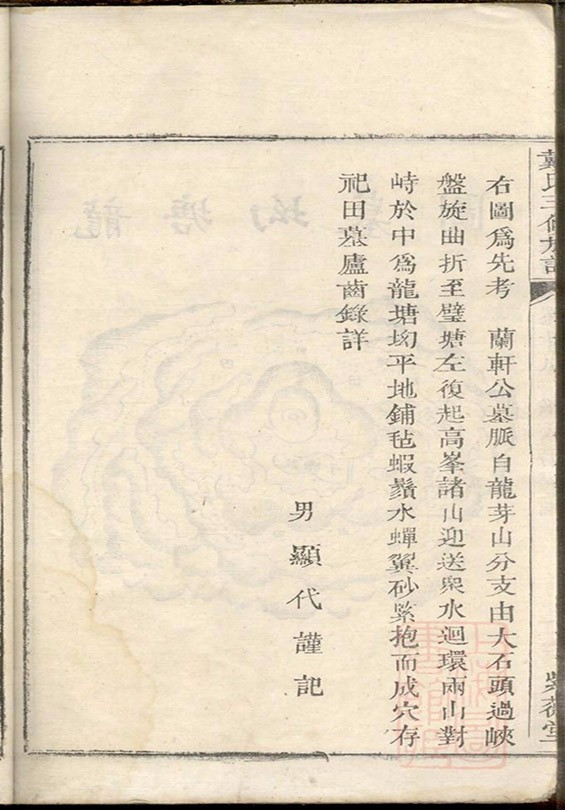 右圖爲先考　蘭軒公墓脈自龍芽山分支由大石頭過峽
盤旋曲折至璧塘左復起高峯諸山迎送衆水迴環兩山對
峙於中爲龍塘坳平地鋪毡蝦鬚水蟬翼砂緊抱而成穴存
祀田墓廬齒錄詳
男顯代謹記
戴氏三修族譜
紫薇堂